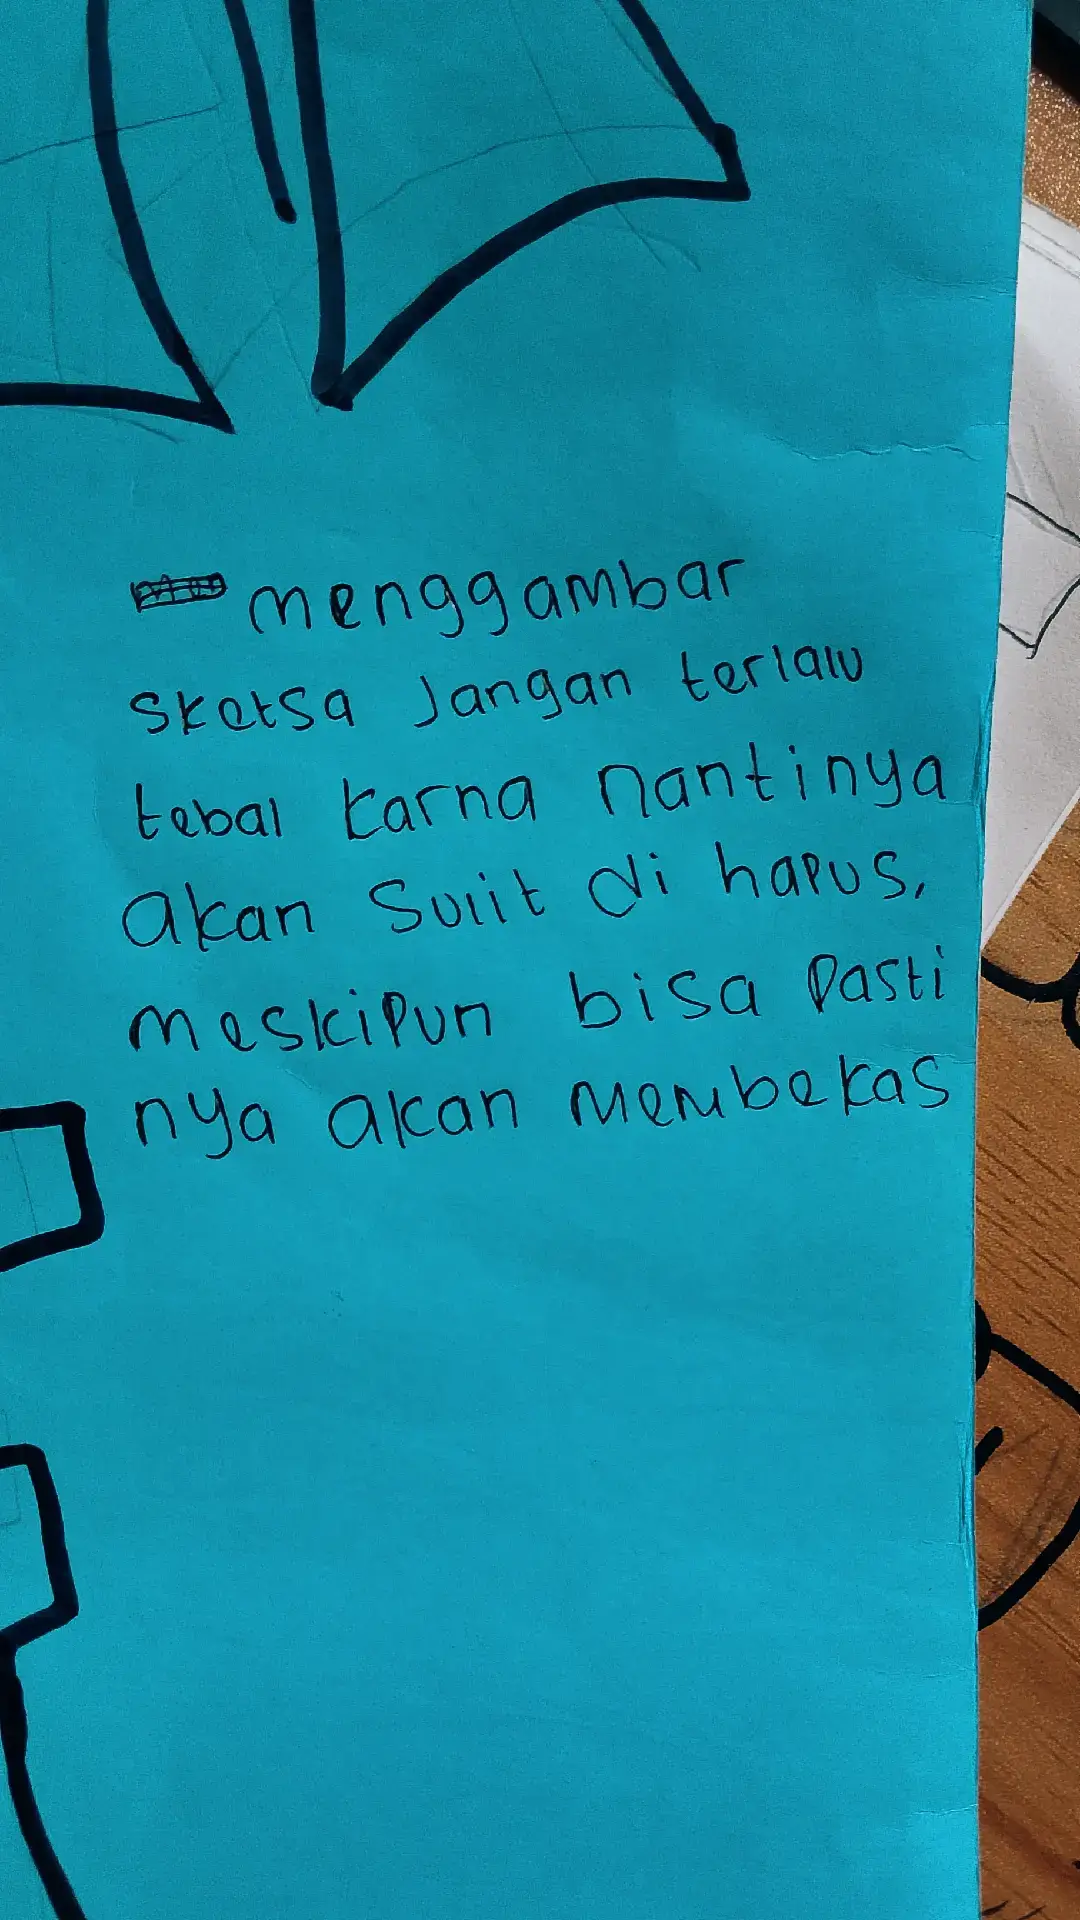 menggambar
sketsa Jangan terlalu
tebal karna nantinya
akan sulit di hapus,
meskipun bisa pasti
nya akan membekas